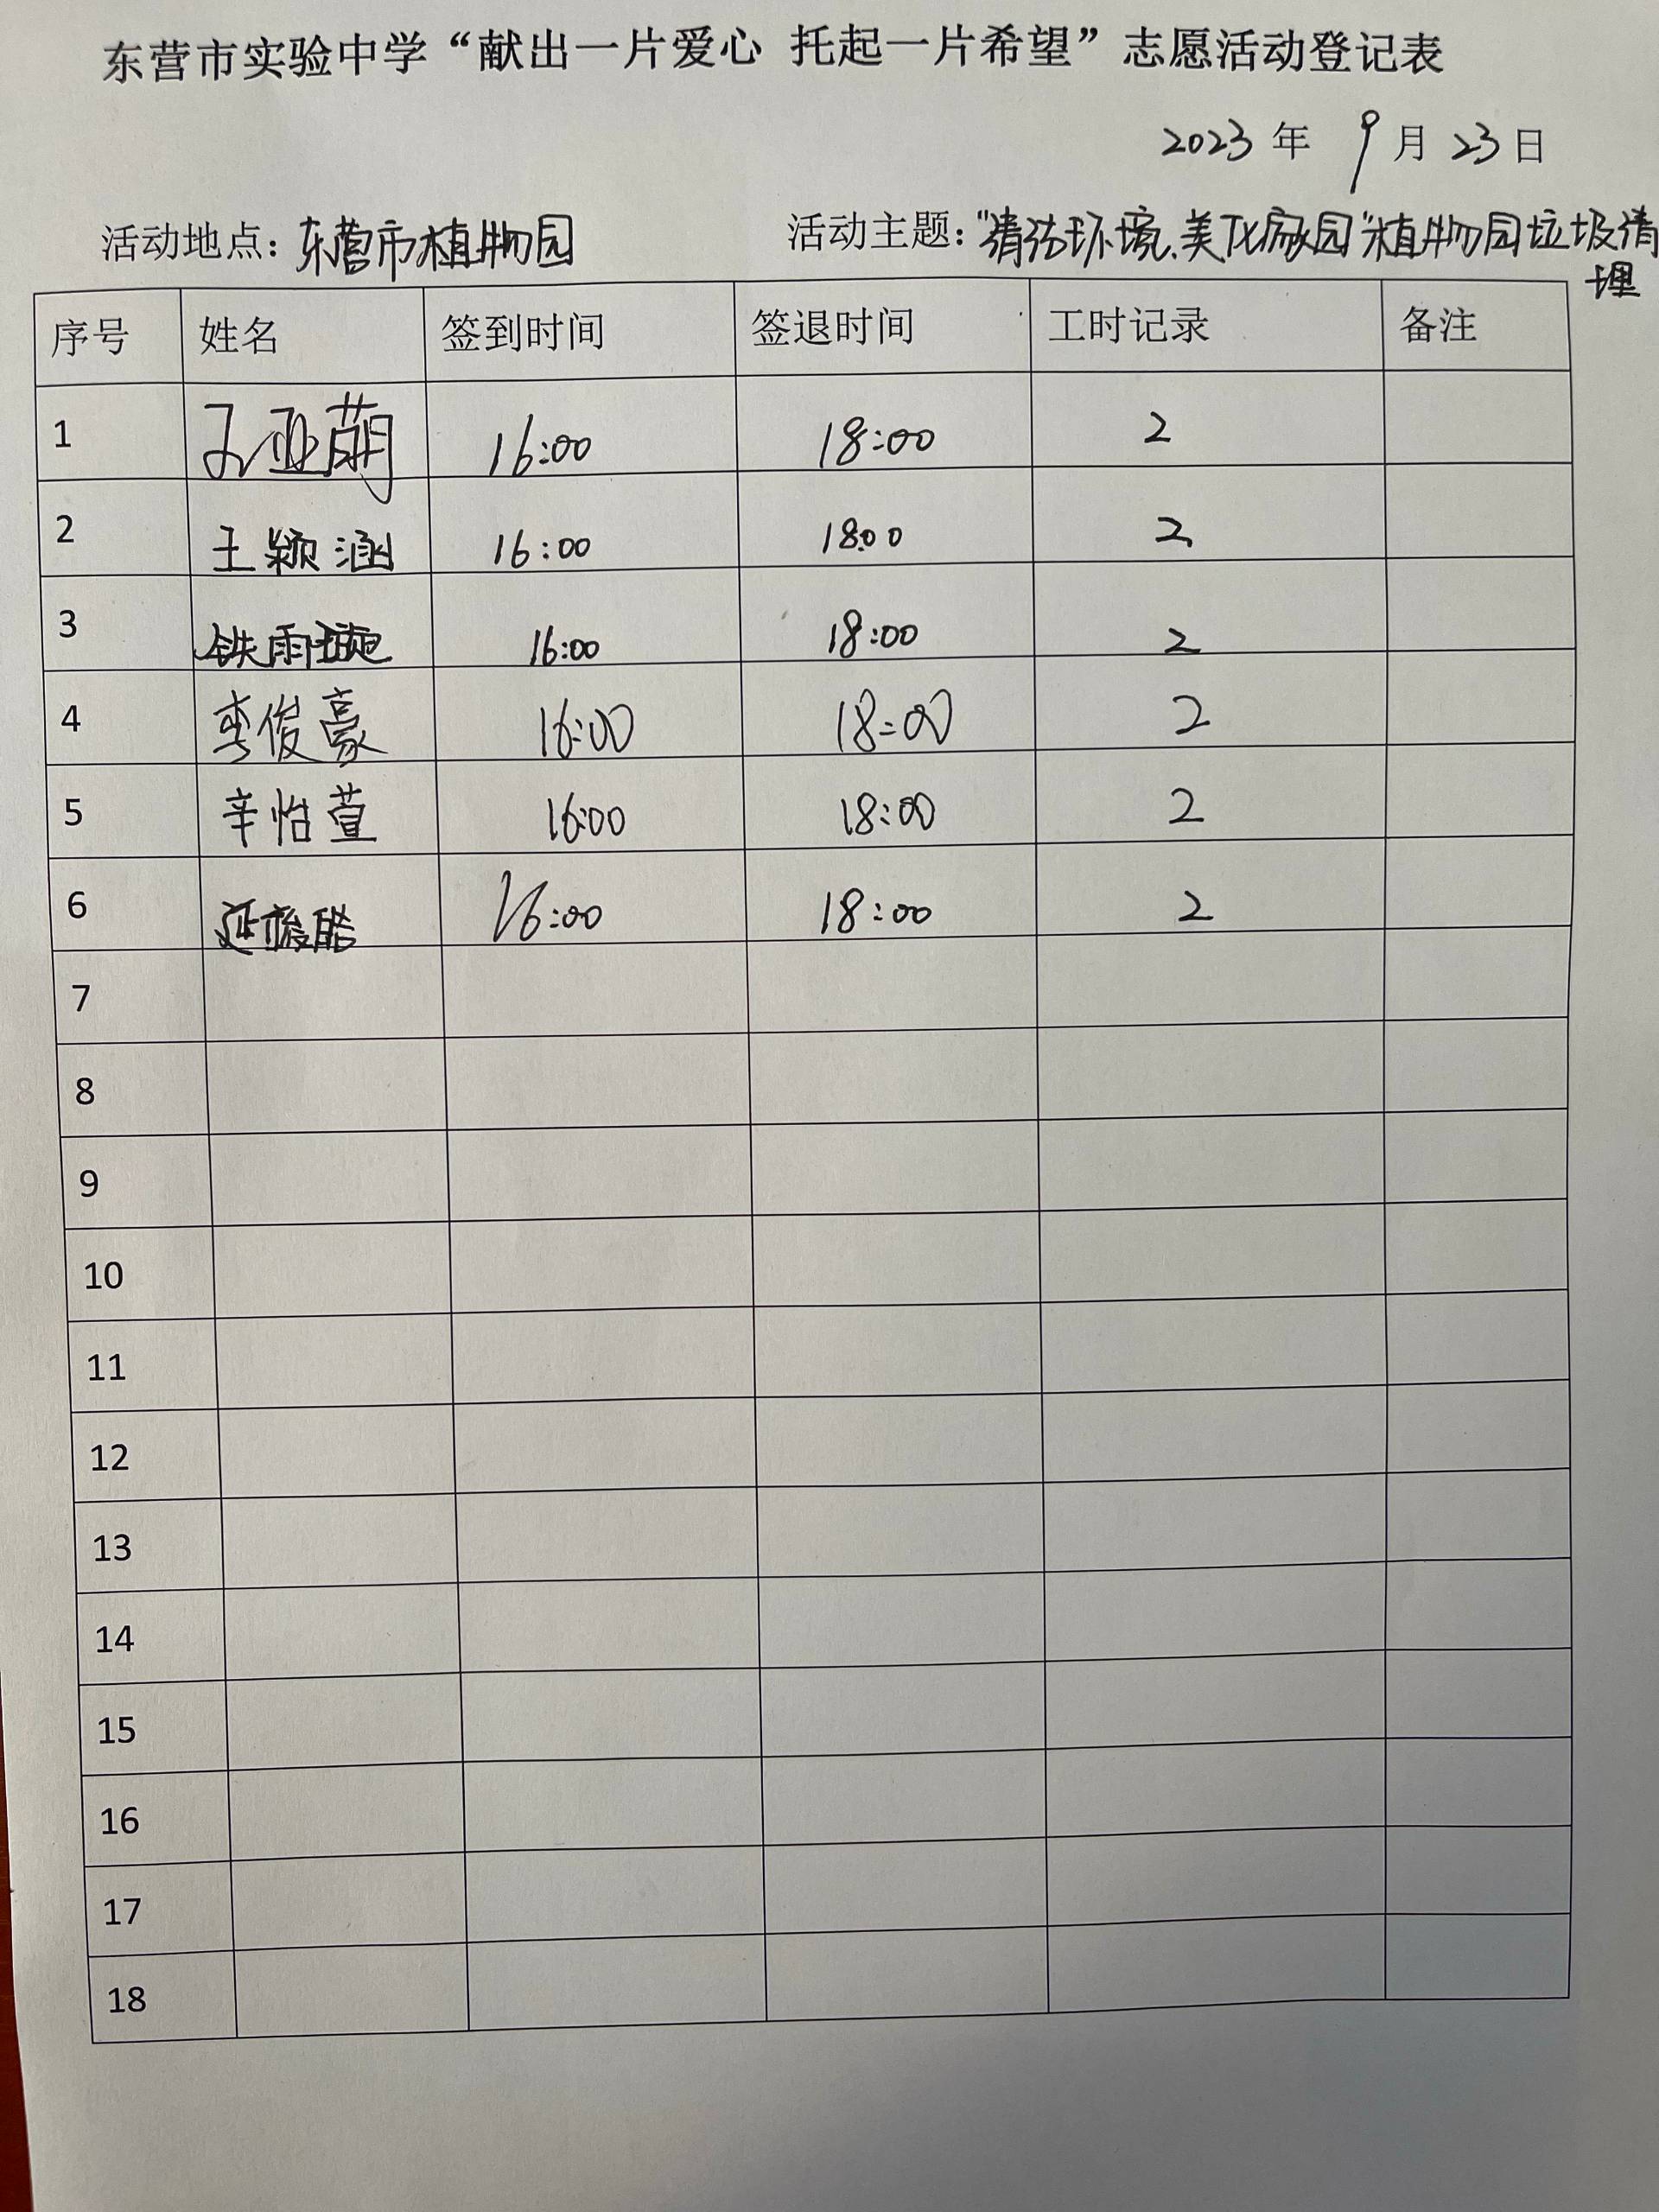 东营市实验中学“献出一片爱心 托起一片希望”志愿活动登记表
2023 年 9 月 23 日
活动地点：东营市植物园 活动主题：“清洁环境、美化家园”植物园垃圾清
理
序号 姓名 签到时间 签退时间 工时记录 备注
1 孙亚萌 16:00 18:00 2
2 王颖涵 16:00 18:00 2
3 铁雨 16:00 18:00 2
4 李俊豪 16:00 18:00 2
5 辛怡萱 16:00 18:00 2
6 延 16:00 18:00 2
7
8
9
10
11
12
13
14
15
16
17
18